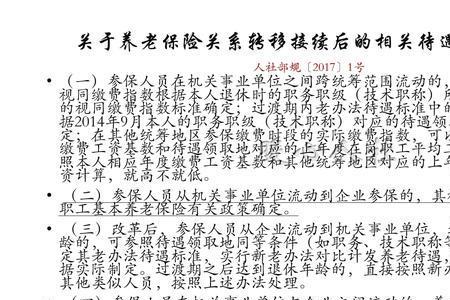 关于养老保险关系转移接续后的相关待遇
人社部规〔2017〕1号
• （一）参保人员在机关事业单位之间跨统筹范围流动的，
视同缴费指数根据本人退休时的职务职级（技术职称）所
的视同缴费指数标准确定；过渡期内老办法待遇标准中的
据2014年9月本人的职务职级（技术职称）对应的待遇领
定；在其他统筹地区参保缴费时段的实际缴费指数，可以
缴费工资基数和待遇领取地对应的上年度在岗职工平均工
照本人相应年度缴费工资基数和其他统筹地区对应的上年
资计算，就高不就低。
• （二）参保人员从机关事业单位流动到企业参保的，其
职工基本养老保险有关政策确定。
• （三）改革后，参保人员从企业流动到机关事业单位，
龄的，可参照待遇领取地同等条件（如职务、技术职称等
定其老办法待遇标准，实行新老办法对比计发养老待遇，
据实际制定。过渡期之后达到退休年龄的，直接按照新办
其他类似人员，按照上述办法处理。